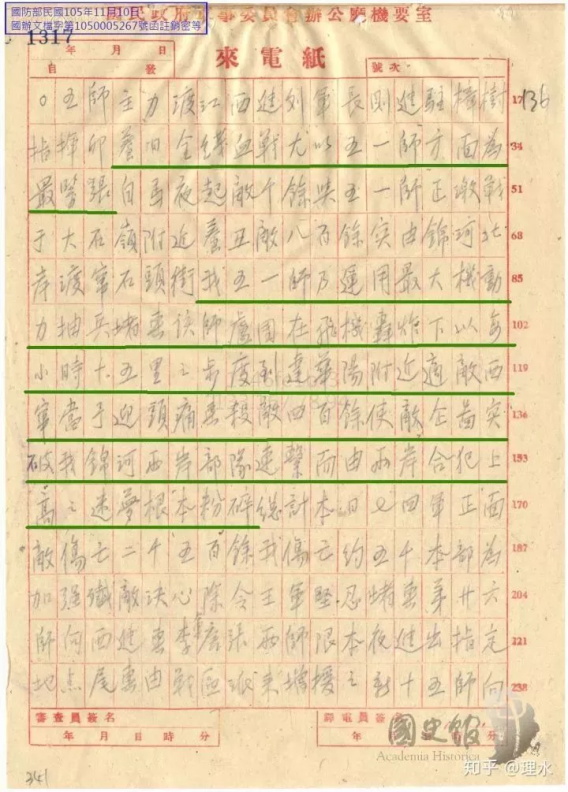 國防部民國105年11月10日
國辦文檔字第1050005267號函註銷密等
民政府軍事委員會辦公廳機要室
1317
年 月 日
來電紙
自 發
號次
136
〇五師主力渡江西進列軍長則進駐樟樹 17
指揮卯養日全線血戰尤以五一師方面為 34
最緊張自馬夜起敵千餘與五一師正激戰 51
于大石嶺附近養丑敵八百餘突由錦河北 68
岸渡竄石頭街我五一師乃運用最大機動 85
力抽兵堵擊該師盧團在飛機轟炸下以每 102
小時十五里之步度到達華陽附近適敵西 119
竄當予迎頭痛擊殺敵四百餘使敵企啚突 136
破我錦河西岸部隊連繫而由兩岸合犯上 153
高之迷夢根本粉碎總計本日七四軍正面 170
敵傷亡二千五百餘我傷亡約五千本部為 187
加強殲敵決心除令王軍堅忍堵擊第廿六 204
師向西進擊李軍唐張兩師限本夜進出指定 221
地点尾擊由戰區派來增援之新十五師向 238
審查員簽名
年 月 日 時 分
譯電員簽名
年 分
國史館
Academia Historica
知乎 @理水
341